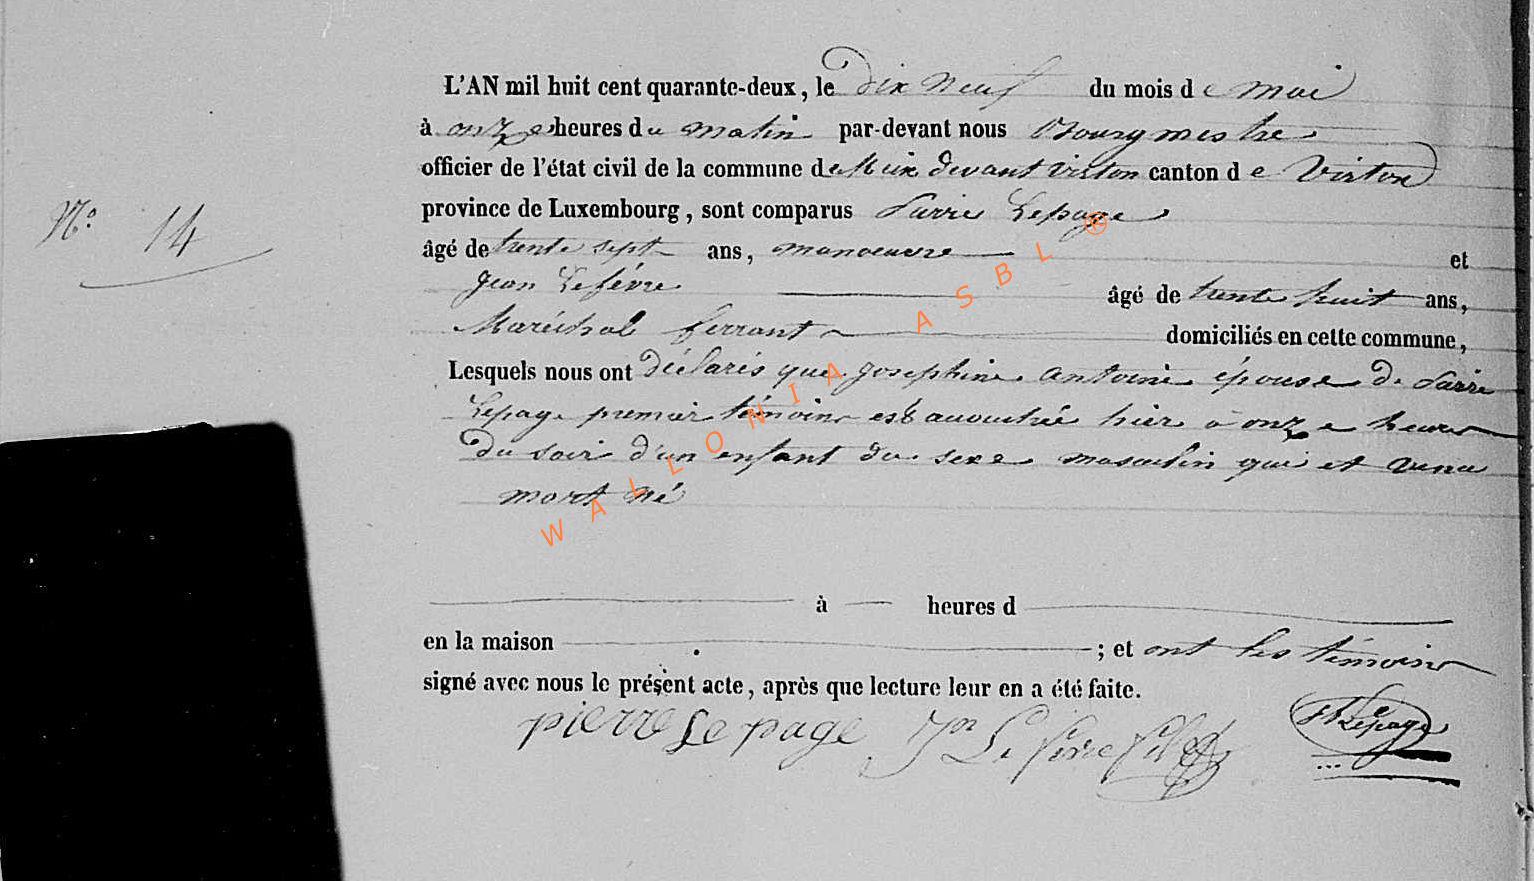 L'AN mil huit cent quarante-deux, le dix neuf du mois de mai
à onze heures du matin par-devant nous Bourgmestre
officier de l'état civil de la commune de Meix devant virton canton de Virton
N.º 14
province de Luxembourg, sont comparus Pierre Lepage
âgé de trente sept ans, manoeuvre et
Jean Lefévre âgé de trente huit ans,
Maréchal ferrant domiciliés en cette commune,
Lesquels nous ont déclarés que Josephine Antoine épouse de Pierre
Lepage premier témoin est accouchée hier à onze heures
du soir d'un enfant du sexe masculin qui et venu
mort né
à heures d
en la maison ; et ont les témoins
signé avec nous le présent acte, après que lecture leur en a été faite.
pierre Le page Jn Le fevre Lepage
WALLONIA ASBL ®